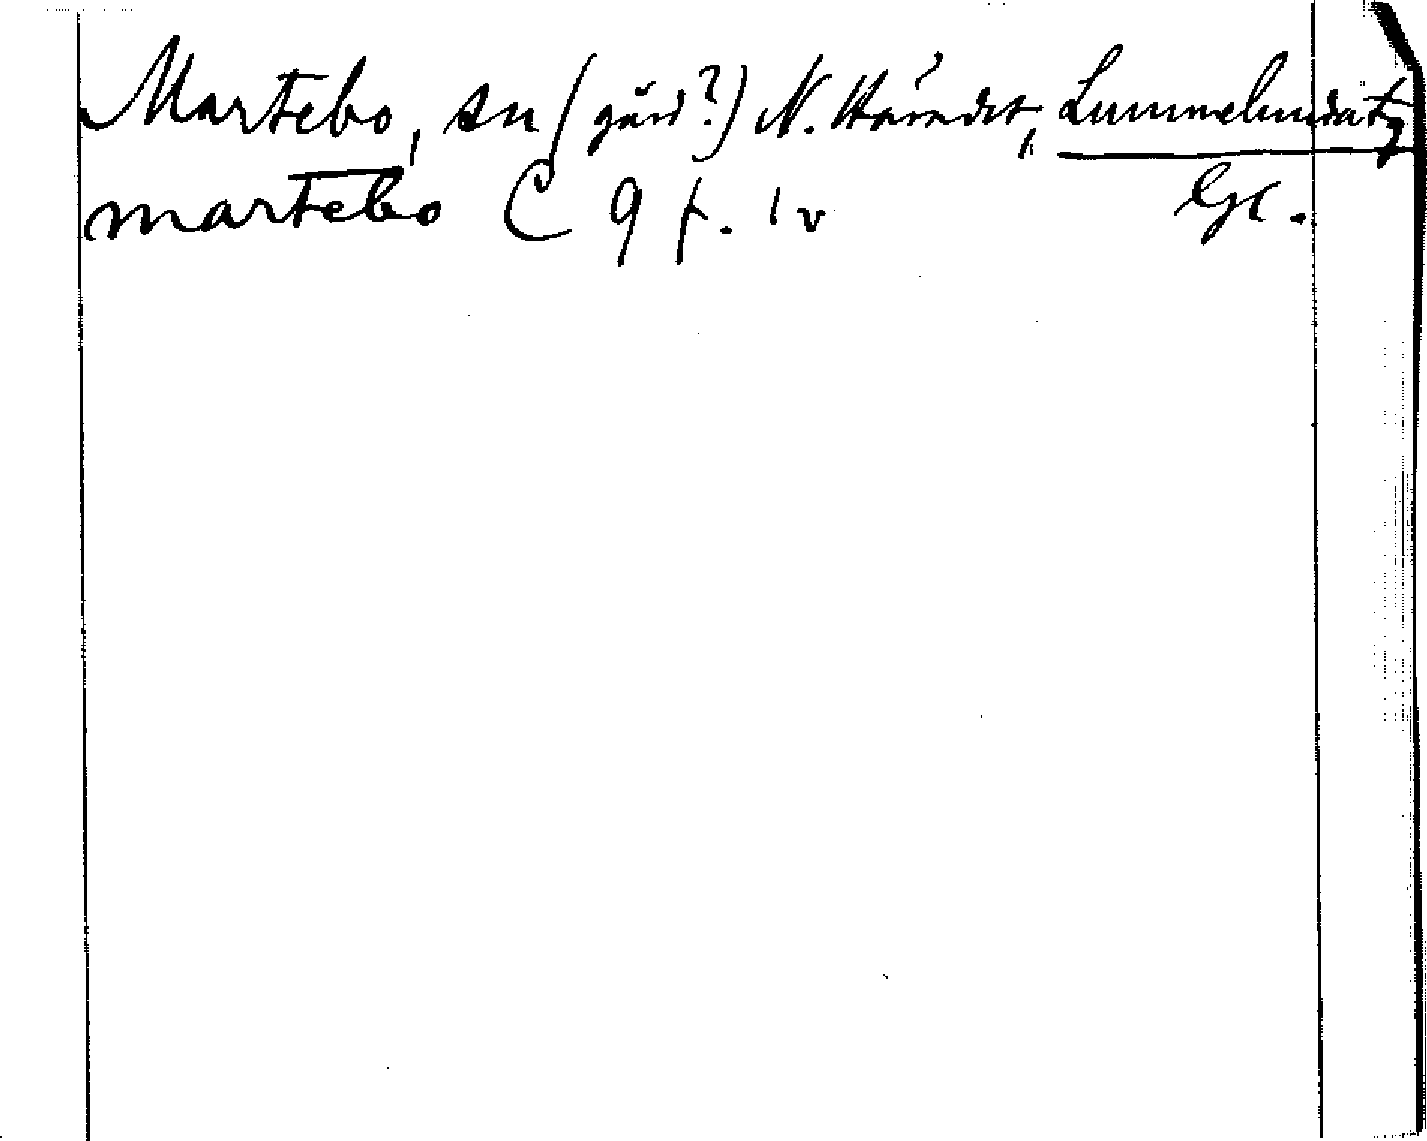 Martebo, sn (gård?) N. Häradet, Lummelundat,
martebo C 9 f. 1 v Gl.